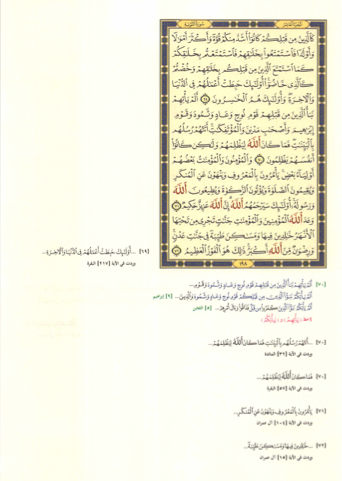 الجزء العاشر
سورة التوبة
كَالَّذِينَ مِن قَبْلِكُمْ كَانُوا أَشَدَّ مِنكُمْ قُوَّةً وَأَكْثَرَ أَمْوَالًا
وَأَوْلَادًا فَاسْتَمْتَعُوا بِخَلَاقِهِمْ فَاسْتَمْتَعْتُم بِخَلَاقِكُمْ
كَمَا اسْتَمْتَعَ الَّذِينَ مِن قَبْلِكُم بِخَلَاقِهِمْ وَخُضْتُمْ
كَالَّذِي خَاضُوا أُولَٰئِكَ حَبِطَتْ أَعْمَالُهُمْ فِي الدُّنْيَا
وَالْآخِرَةِ وَأُولَٰئِكَ هُمُ الْخَاسِرُونَ ٦٩ أَلَمْ يَأْتِهِمْ
نَبَأُ الَّذِينَ مِن قَبْلِهِمْ قَوْمِ نُوحٍ وَعَادٍ وَثَمُودَ وَقَوْمِ
إِبْرَاهِيمَ وَأَصْحَابِ مَدْيَنَ وَالْمُؤْتَفِكَاتِ أَتَتْهُمْ رُسُلُهُم
بِالْبَيِّنَاتِ فَمَا كَانَ اللَّهُ لِيَظْلِمَهُمْ وَلَٰكِن كَانُوا
أَنفُسَهُمْ يَظْلِمُونَ ٧٠ وَالْمُؤْمِنُونَ وَالْمُؤْمِنَاتُ بَعْضُهُمْ
أَوْلِيَاءُ بَعْضٍ يَأْمُرُونَ بِالْمَعْرُوفِ وَيَنْهَوْنَ عَنِ الْمُنكَرِ
وَيُقِيمُونَ الصَّلَاةَ وَيُؤْتُونَ الزَّكَاةَ وَيُطِيعُونَ اللَّهَ
وَرَسُولَهُ أُولَٰئِكَ سَيَرْحَمُهُمُ اللَّهُ إِنَّ اللَّهَ عَزِيزٌ حَكِيمٌ ٧١
وَعَدَ اللَّهُ الْمُؤْمِنِينَ وَالْمُؤْمِنَاتِ جَنَّاتٍ تَجْرِي مِن تَحْتِهَا
الْأَنْهَارُ خَالِدِينَ فِيهَا وَمَسَاكِنَ طَيِّبَةً فِي جَنَّاتِ عَدْنٍ
وَرِضْوَانٌ مِّنَ اللَّهِ أَكْبَرُ ذَٰلِكَ هُوَ الْفَوْزُ الْعَظِيمُ ٧٢
١٩٨
(٦٩) ...أُولَٰئِكَ حَبِطَتْ أَعْمَالُهُمْ فِي الدُّنْيَا وَالْآخِرَةِ...
وردت في الآية [٢١٧] البقرة
(٧٠) أَلَمْ يَأْتِهِمْ نَبَأُ الَّذِينَ مِن قَبْلِهِمْ قَوْمِ نُوحٍ وَعَادٍ وَثَمُودَ وَقَوْمِ...
أَلَمْ يَأْتِكُمْ نَبَأُ الَّذِينَ مِن قَبْلِكُمْ قَوْمِ نُوحٍ وَعَادٍ وَثَمُودَ وَالَّذِينَ... [٩] إبراهيم
أَلَمْ يَأْتِكُمْ نَبَأُ الَّذِينَ كَفَرُوا مِن قَبْلُ فَذَاقُوا وَبَالَ أَمْرِهِمْ... [٥] التغابن
(٧٠) ...أَتَتْهُمْ رُسُلُهُم بِالْبَيِّنَاتِ فَمَا كَانَ اللَّهُ لِيَظْلِمَهُمْ...
وردت في الآية [٣٢] المائدة
(٧٠) فَمَا كَانَ اللَّهُ لِيَظْلِمَهُمْ...
وردت في الآية [٥٧] البقرة
(٧١) ...يَأْمُرُونَ بِالْمَعْرُوفِ وَيَنْهَوْنَ عَنِ الْمُنكَرِ...
وردت في الآية [١٠٤] آل عمران
(٧٢) ...خَالِدِينَ فِيهَا وَمَسَاكِنَ طَيِّبَةً...
وردت في الآية [١٥] آل عمران